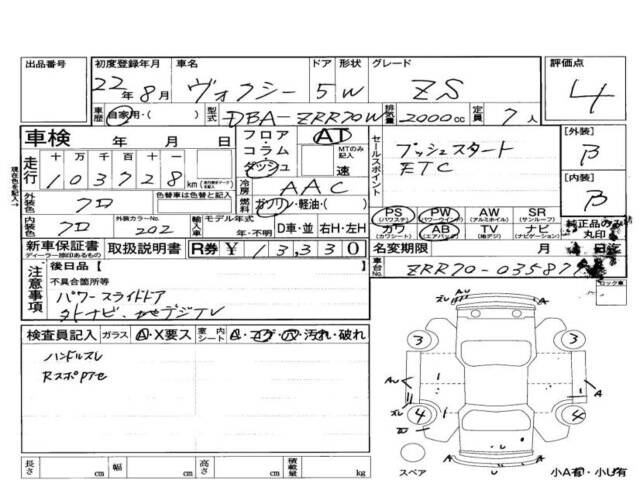 出品番号 初度登録年月 車名 ドア 形状 グレード 評価点
22年8月 ヴォクシー 5 W ZS 4
車歴 自家用・( ) 型式 DBA-ZRR70W 排気量 2000cc 定員 7人
車検 年 月 日 フロア・コラム ダッシュ AT MTのみ記入 速 セールスポイント プッシュスタート [外装] B
走行 十 万 千 百 十 一 103728 km ETC [内装] B
外装色 クロ 色替車は色替と記入 冷房 AAC
燃料 ガソリン・軽油・( ) PS (パワステ) PW (パワーウインド) AW (アルミホイル) SR (サンルーフ) 純正品のみ丸印
内装色 クロ 外装カラーNo. 202 輸入車 モデル年式 年・不明 D車・並 右H・左H カワ (カワシート) AB (エアバック) TV (地デジ) ナビ (ナビゲーション)
新車保証書 ディーラー捺印あるもの 取扱説明書 R券 ¥13,330 名変期限 月 日迄
注意事項 後日品【 】 車台No. ZRR70-03587
不具合箇所等 ロック車
パワースライドドア
外ナビ・地デジTV
検査員記入 ガラス A・X要ス 室内シート A・コゲ・穴・汚れ・破れ
ハンドルスレ
3 3
4 4
スペア 小A有・小U有
長さ cm 幅 cm 高さ cm 積載量 kg
現在の色を記入